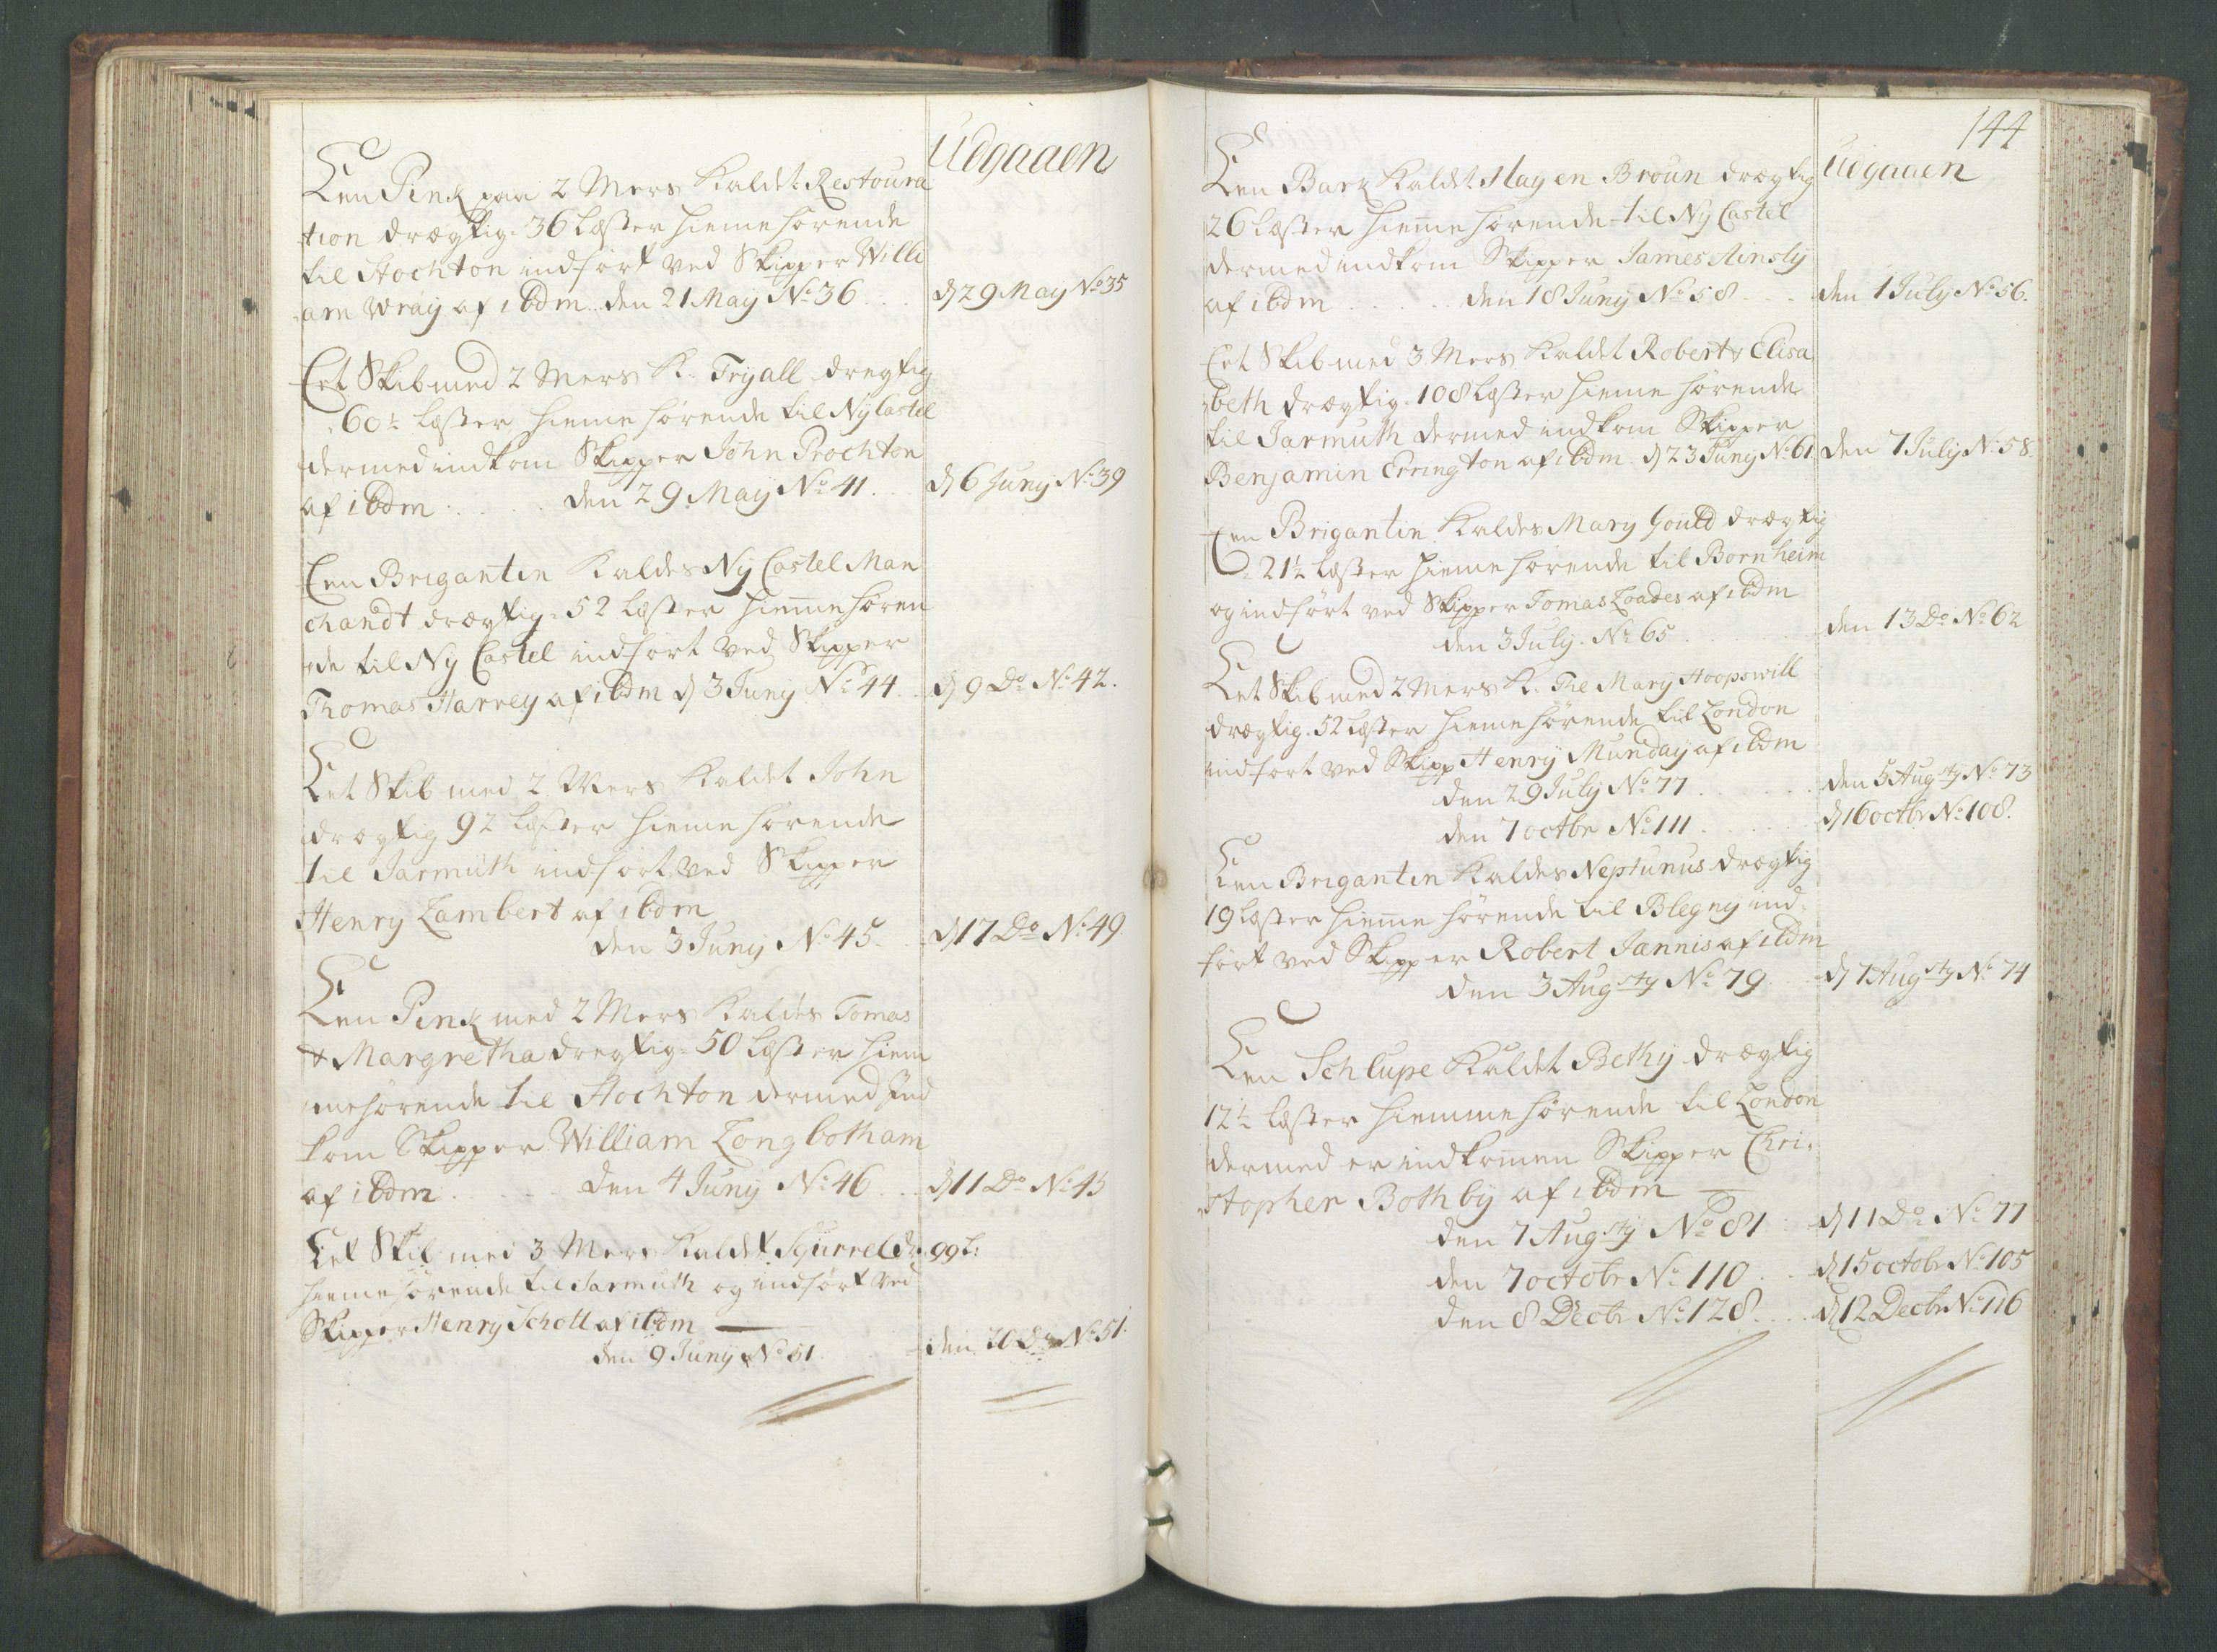 Udgaaen
Een Pink paa 2 Mers Kaldet Restoura
tion drægtig 36 Læster hiemehörende
til Stochton indfört ved Skipper Willi
am Wray af ibdm den 21 May No 36 . . . d 29 May No 35
Eet Skib med 2 Mers K. Tryall dregtig
60½ Læster hiemehörende til Ny Castel
dermed indkom Skipper John Prochton
af ibdm . . . . den 29 May No 41 . . . d 6 Juny No 39
Een Brigantin Kaldes Ny Castel Man
chandt drægtig 52 Læster hiemmehören
de til Ny Castel indfört ved Skipper
Thomas Harvey af ibdm d 3 Juny No 44 . . d 9 Do No 42.
Eet Skib med 2 Mers Kaldet John
drægtig 92 Læster hiemehörende
til Jarmuth indfört ved Skipper
Henry Lambert af ibdm
den 3 Juny No 45 . . d 17 Do No 49
Een Pink med 2 Mers Kaldes Tomas
& Margretha dregtig 50 Læster hiem
mehörende til Stochton dermed Ind
kom Skipper William Longbotham
af ibdm . . . . den 4 Juny No 46 . . . d 11 Do No 45
Eet Skib med 3 Mers Kaldet Squrrel dr. 99 L:
hiemehörende til Jarmuth og indfört ved
Skipper Henry Schott af ibdm
den 9 Juny No 51 . . . den 20 Do No 51.
144
Udgaaen
Een Bark Kaldet Hayen Broun drægtig
26 Læster hiemehörende til Ny Castel
dermed indkom Skipper James Ainsly
af ibdm . . . . den 18 Juny No 58 . . . den 1 July No 56.
Eet Skib med 3 Mers Kaldet Robert & Elisa
beth drægtig 108 Læster hiemehörende
til Jarmuth dermed indkom Skipper
Benjamin Errington af ibdm d 23 Juny No 61 den 7 July No 58.
Een Brigantin Kaldes Mary Gould drægtig
21½ Læster hiemehörende til Bornheim
og indfört ved Skipper Tomas Loades af ibdm
den 3 July No 65 . . . . den 13 Do No 62
Eet Skib med 2 Mers K. The Mary Hoopswill
drægtig 52 Læster hiemehörende til London
indfört ved Skipp Henry Munday af ibdm
den 29 July No 77 . . . . den 5 Augsty No 73
den 7 octbr No 111 . . . . d 16 octbr No 108.
Een Brigantin Kaldes Neptunus drægtig
19 Læster hiemehörende til Blegny ind
fört ved Skipper Robert Jannis af ibdm
den 3 Augsty No 79 . . d 7 Augsty No 74
Een Schlupe Kaldet Bethy drægtig
12½ Læster hiemmehörende til London
dermed er indkommen Skipper Chri
stopher Bothby af ibdm
den 7 Augsty No 81 . . d 11 Do No 77
den 7 octobr No 110 . . d 15 octobr No 105
den 8 Decbr No 128 . . . . d 12 Decbr No 116